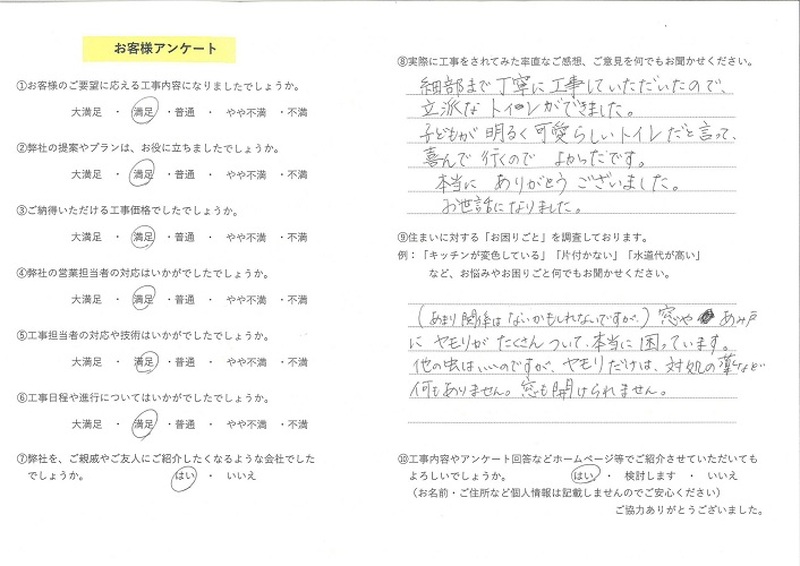 お客様アンケート
①お客様のご要望に応える工事内容になりましたでしょうか。
大満足 ・ 満足 ・普通 ・ やや不満 ・不満
②弊社の提案やプランは、お役に立ちましたでしょうか。
大満足 ・ 満足 ・普通 ・ やや不満 ・不満
③ご納得いただける工事価格でしたでしょうか。
大満足 ・ 満足 ・普通 ・ やや不満 ・不満
④弊社の営業担当者の対応はいかがでしたでしょうか。
大満足 ・ 満足 ・普通 ・ やや不満 ・不満
⑤工事担当者の対応や技術はいかがでしたでしょうか。
大満足 ・ 満足 ・普通 ・ やや不満 ・不満
⑥工事日程や進行についてはいかがでしたでしょうか。
大満足 ・ 満足 ・普通 ・ やや不満 ・不満
⑦弊社を、ご親戚やご友人にご紹介したくなるような会社でした
でしょうか。 はい ・ いいえ
⑧実際に工事をされてみた率直なご感想、ご意見を何でもお聞かせください。
細部まで丁寧に工事していただいたので、
立派なトイレができました。
子どもが明るく可愛らしいトイレだと言って、
喜んで行くので よかったです。
本当に ありがとう ございました。
お世話になりました。
⑨住まいに対する「お困りごと」を調査しております。
例：「キッチンが変色している」「片付かない」「水道代が高い」
など、お悩みやお困りごと何でもお聞かせください。
(あまり関係はないかもしれないですが、) 窓や あみ戸
に ヤモリが たくさん ついて、本当に 困っています。
他の虫はいいのですが、ヤモリだけは、対処の薬など
何もありません。窓も開けられません。
⑩工事内容やアンケート回答などホームページ等でご紹介させていただいても
よろしいでしょうか。 はい ・ 検討します ・ いいえ
（お名前・ご住所など個人情報は記載しませんのでご安心ください）
ご協力ありがとうございました。